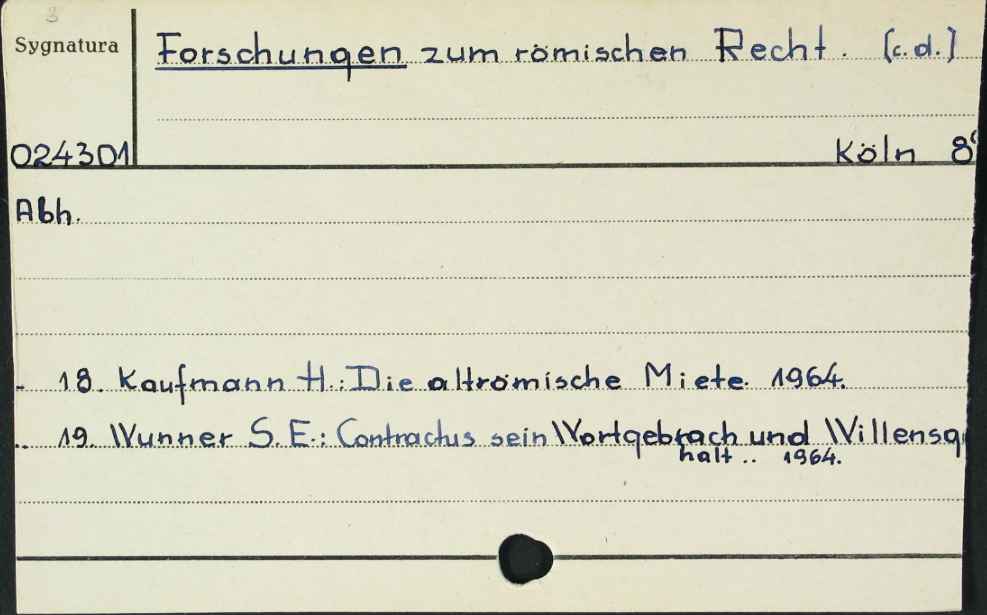 3
Sygnatura
Forschungen zum römischen Recht. (c.d.)
024301
Köln 8°
Abh.
- 18. Kaufmann H.: Die altrömische Miete. 1964.
.. 19. Wunner S. E.: Contractus sein Wortgebrach und Willensg
halt .. 1964.